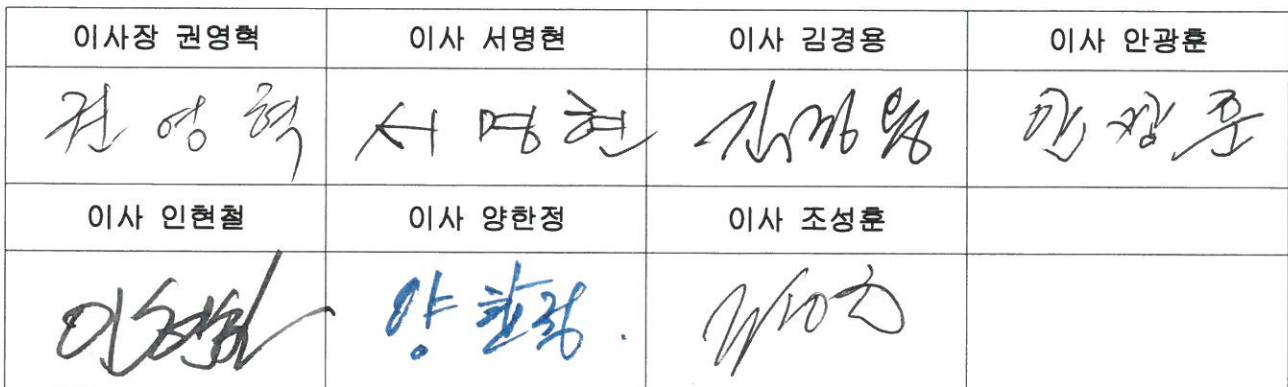 이사장 권영혁 이사 서명현 이사 김경용 이사 안광훈
권영혁 서명현 김경용 안광훈
이사 인현철 이사 양한정 이사 조성훈
인현철 양한정.